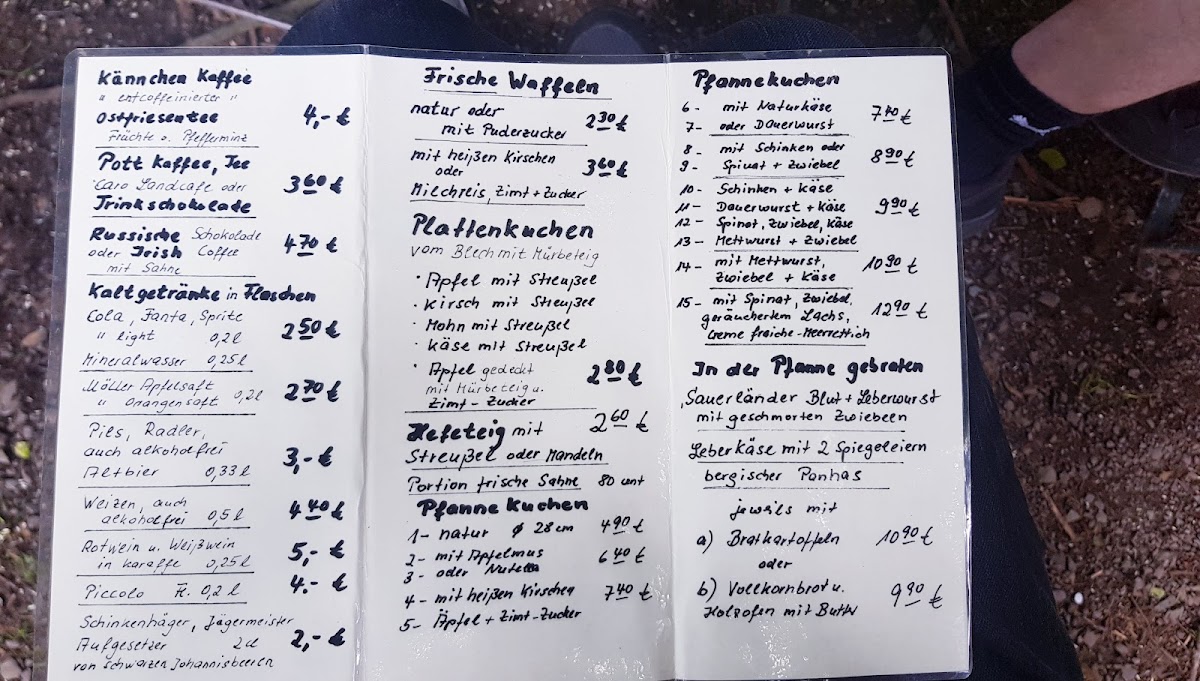 Kännchen Kaffee
" entcoffeinierter "
Ostfriesentee 4,- €
Früchte o. Pfefferminz
Pott Kaffee, Tee
Caro Landcafe oder 3 60 €
Trinkschokolade
Russische Schokolade
oder Irish Coffee 4 70 €
mit Sahne
Kaltgetränke in Flaschen
Cola, Fanta, Sprite
" light 0,2 l 2 50 €
Mineralwasser 0,25 l
Möller Apfelsaft
" Orangensaft 0,2 l 2 70 €
Pils, Radler,
auch alkoholfrei
Altbier 0,33 l 3,- €
Weizen, auch
alkoholfrei 0,5 l 4 40 €
Rotwein u. Weißwein
in Karaffe 0,25 l 5,- €
Piccolo Fl. 0,2 l 4.- €
Schinkenhäger, Jägermeister
Aufgesetzer 2cl 2,- €
von schwarzen Johannisbeeren
Frische Waffeln
natur oder
mit Puderzucker 2 30 €
mit heißen Kirschen
oder 3 60 €
Milchreis, Zimt + Zucker
Plattenkuchen
vom Blech mit Mürbeteig
· Apfel mit Streußel
· Kirsch mit Streußel
· Mohn mit Streußel
· Käse mit Streußel
· Apfel gedeckt 2 80 €
mit Mürbeteig u.
Zimt - Zucker
Hefeteig mit 2 60 €
Streußel oder Mandeln
Portion frische Sahne 80 cent
Pfanne Kuchen
1 - natur ø 28 cm 4 90 €
2 - mit Apfelmus 6 40 €
3 - oder Nutella
4 - mit heißen Kirschen 7 40 €
5 - Äpfel + Zimt-Zucker
Pfannekuchen
6 - mit Naturkäse 7 40 €
7 - oder Dauerwurst
8 - mit Schinken oder 8 90 €
9 - Spinat + Zwiebel
10 - Schinken + Käse
11 - Dauerwurst + Käse 9 90 €
12 - Spinat, Zwiebel, Käse
13 - Mettwurst + Zwiebel
14 - mit Mettwurst, 10 90 €
Zwiebel + Käse
15 - mit Spinat, Zwiebel,
geräuchertem Lachs, 12 90 €
Creme fraiche - Meerrettich
In der Pfanne gebraten
Sauerländer Blut + Leberwurst
mit geschmorten Zwiebeln
Leberkäse mit 2 Spiegeleiern
bergischer Panhas
jeweils mit
a) Bratkartoffeln 10 90 €
oder
b) Vollkornbrot u. 9 90 €
Holzofen mit Butter